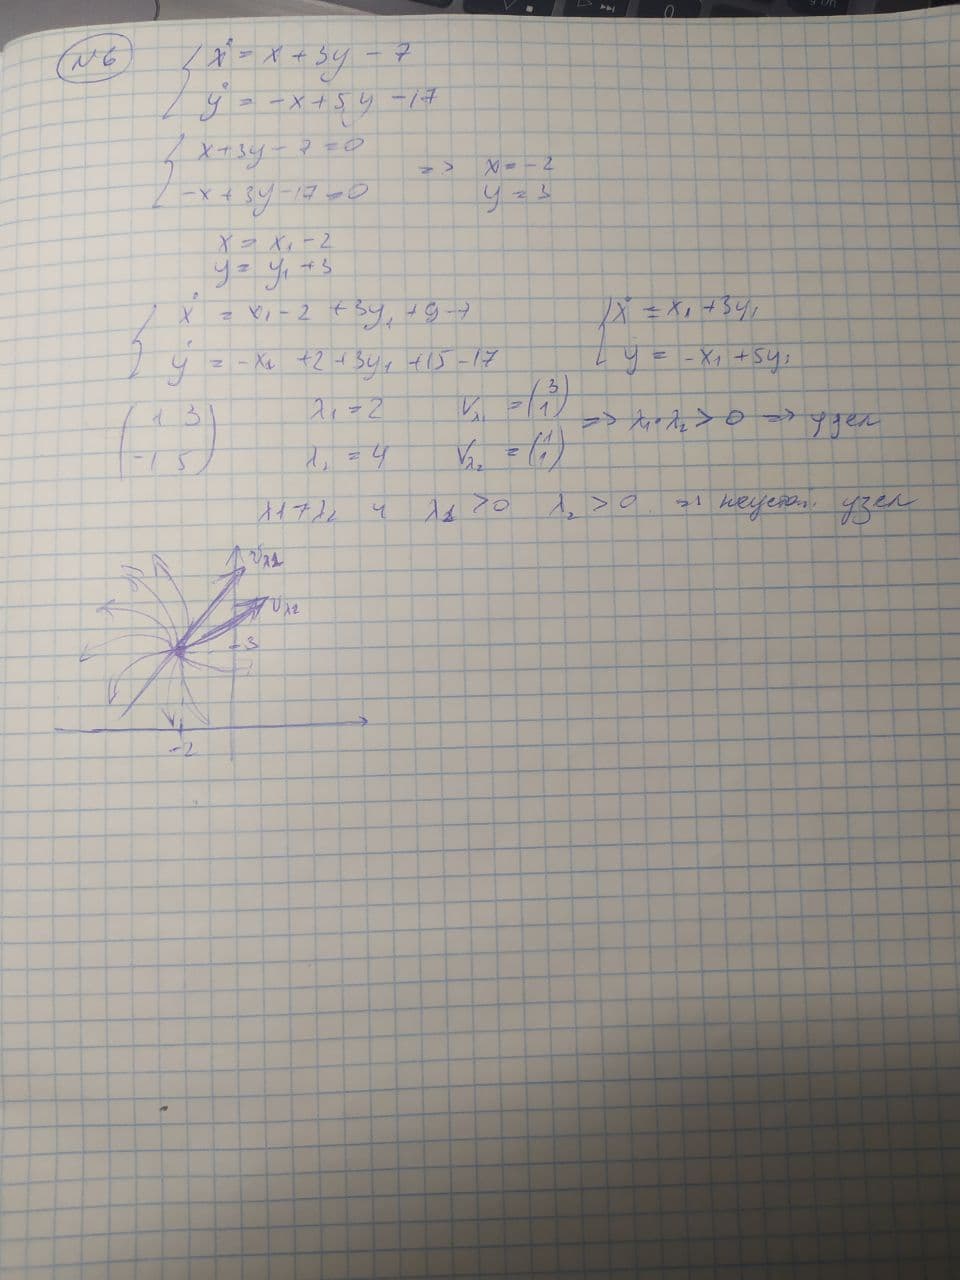 №6
ẋ = x + 3y - 7
ẏ = -x + 5y - 17
x + 3y - 7 = 0
-x + 3y - 17 = 0
=> x = -2
y = 3
x = x₁ - 2
y = y₁ + 3
ẋ = x₁ - 2 + 3y₁ + 9 - 7
ẏ = -x₁ + 2 + 3y₁ + 15 - 17
ẋ = x₁ + 3y₁
ẏ = -x₁ + 5y₁
(1 3
-1 5)
λ₁ = 2 V_λ₁ = (3 1)
λ₂ = 4 V_λ₂ = (1 1)
=> λ₁·λ₂ > 0 => узел
λ1≠λ₂ и λ₁ > 0 λ₂ > 0 => неустой. узел
v_λ1
v_λ2
-3
-2